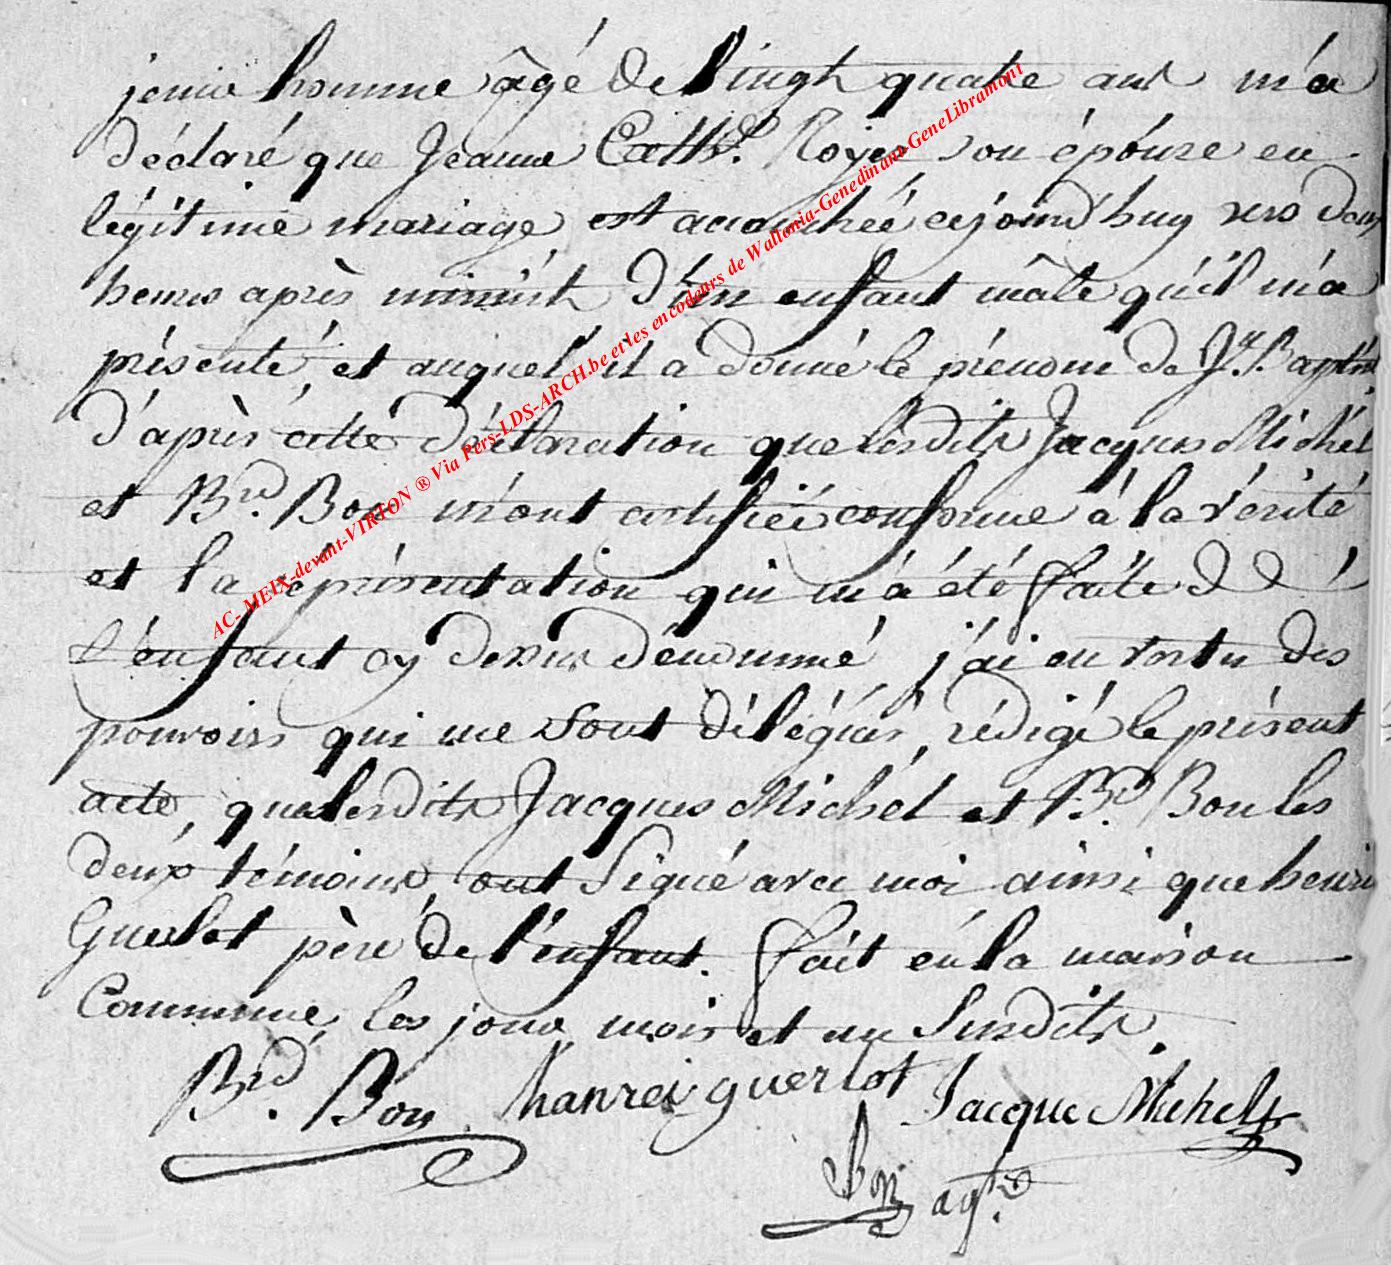 jeune homme âgé de vingt quatre ans m'a
déclaré que Jeanne Cathe. Royer son épouse en
légitime mariage est accouchée cejourd'huy vers deux
heures après minuit d'un enfant mâle qu'il m'a
présenté, et auquel il a donné le prénom de Jn. Bapte
d'après cette déclaration que lesdits Jacques Michel
et Brd. Bon m'ont certifiée conforme à la vérité
et la représentation qui m'a été faite de
l'enfant cy dessus dénommé j'ai en vertu des
pouvoirs qui me sont délégués, rédigé le présent
acte, que lesdits Jacques Michel et Brd. Bon les
deux témoins, ont signé avec moi ainsi que henri
Guerlot père de l'enfant. fait en la maison
Commune, les jour, mois et an susdits.
Brd. Bon hanrei guerlot Jacque Michel
Bon agt.
AC- MEIX-devant-VIRTON ® Via Pers-LDS-ARCH.be et les encodeurs de Wallonia-Genedinant-GeneLibramont